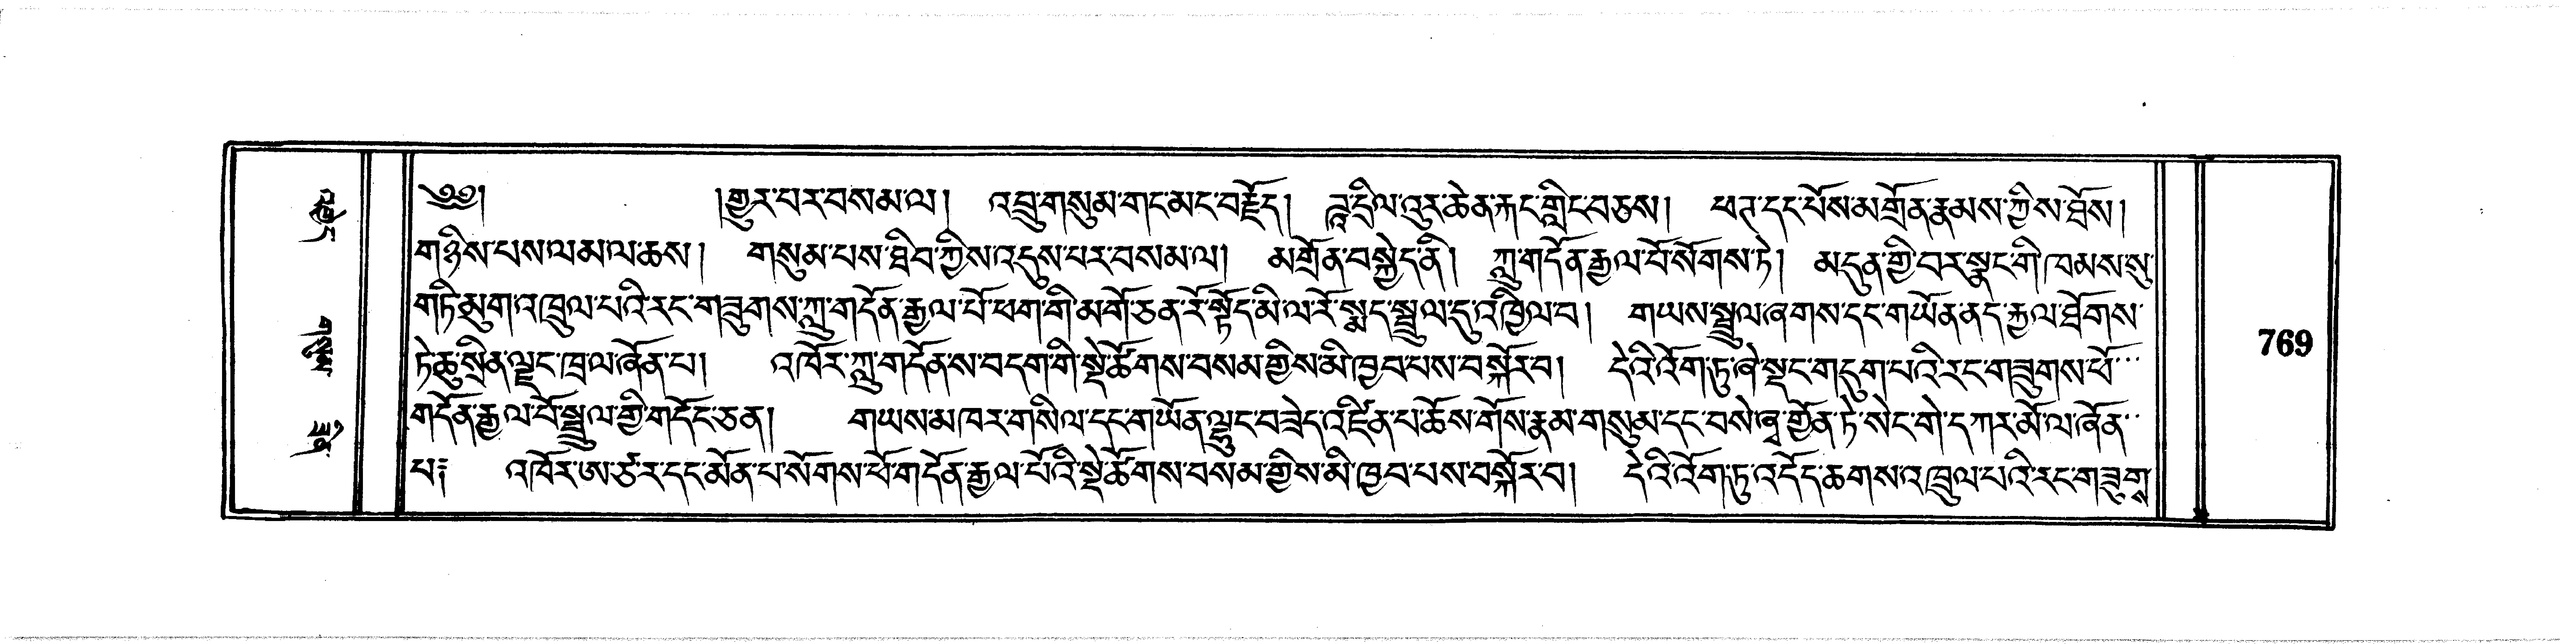 ༄༅། །གྱུར་པར་བསམ་ལ། འབྲུ་གསུམ་གང་མང་བརྗོད། ཌཱ་དྲིལ་འུར་ཆེན་རྐང་གླིང་བཅས། ཕཊ་དང་པོས་མགྲོན་རྣམས་ཀྱིས་ཐོས།
གཉིས་པས་ལམ་ལ་ཆས། གསུམ་པས་ཐིབ་ཀྱིས་འདུས་པར་བསམ་ལ། མགྲོན་བསྐྱེད་ནི། ཀླུ་གདོན་རྒྱལ་པོ་སོགས་ཏེ། མདུན་གྱི་བར་སྣང་གི་ཁམས་སུ་
གཏི་མུག་འཁྲུལ་པའི་རང་གཟུགས་ཀླུ་གདོན་རྒྱལ་པོ་ཕག་གི་མགོ་ཅན་རོ་སྟོད་མི་ལ་རོ་སྨད་སྦྲུལ་དུ་འཁྱིལ་བ། གཡས་སྦྲུལ་ཞགས་དང་གཡོན་ནད་རྐྱལ་ཐོགས་
ཏེ་ཆུ་སྲིན་ལྗང་ཁྲ་ལ་ཞོན་པ། འཁོར་ཀླུ་གདོན་ས་བདག་གི་སྡེ་ཚོགས་བསམ་གྱིས་མི་ཁྱབ་པས་བསྐོར་བ། དེའི་འོག་ཏུ་ཞེ་སྡང་གདུག་པའི་རང་གཟུགས་ཕོ་
གདོན་རྒྱལ་པོ་སྦྲུལ་གྱི་གདོང་ཅན། གཡས་མཁར་གསིལ་དང་གཡོན་ལྷུང་བཟེད་འཛིན་པ་ཆོས་གོས་རྣམ་གསུམ་དང་བསེ་ཞྭ་གྱོན་ཏེ་སེང་གེ་དཀར་མོ་ལ་ཞོན་
པ༔ འཁོར་ཨ་ཙཱར་དང་མོན་པ་སོགས་ཕོ་གདོན་རྒྱལ་པོའི་སྡེ་ཚོགས་བསམ་གྱིས་མི་ཁྱབ་པས་བསྐོར་བ། དེའི་འོག་ཏུ་འདོད་ཆགས་འཁྲུལ་པའི་རང་གཟུགས
769